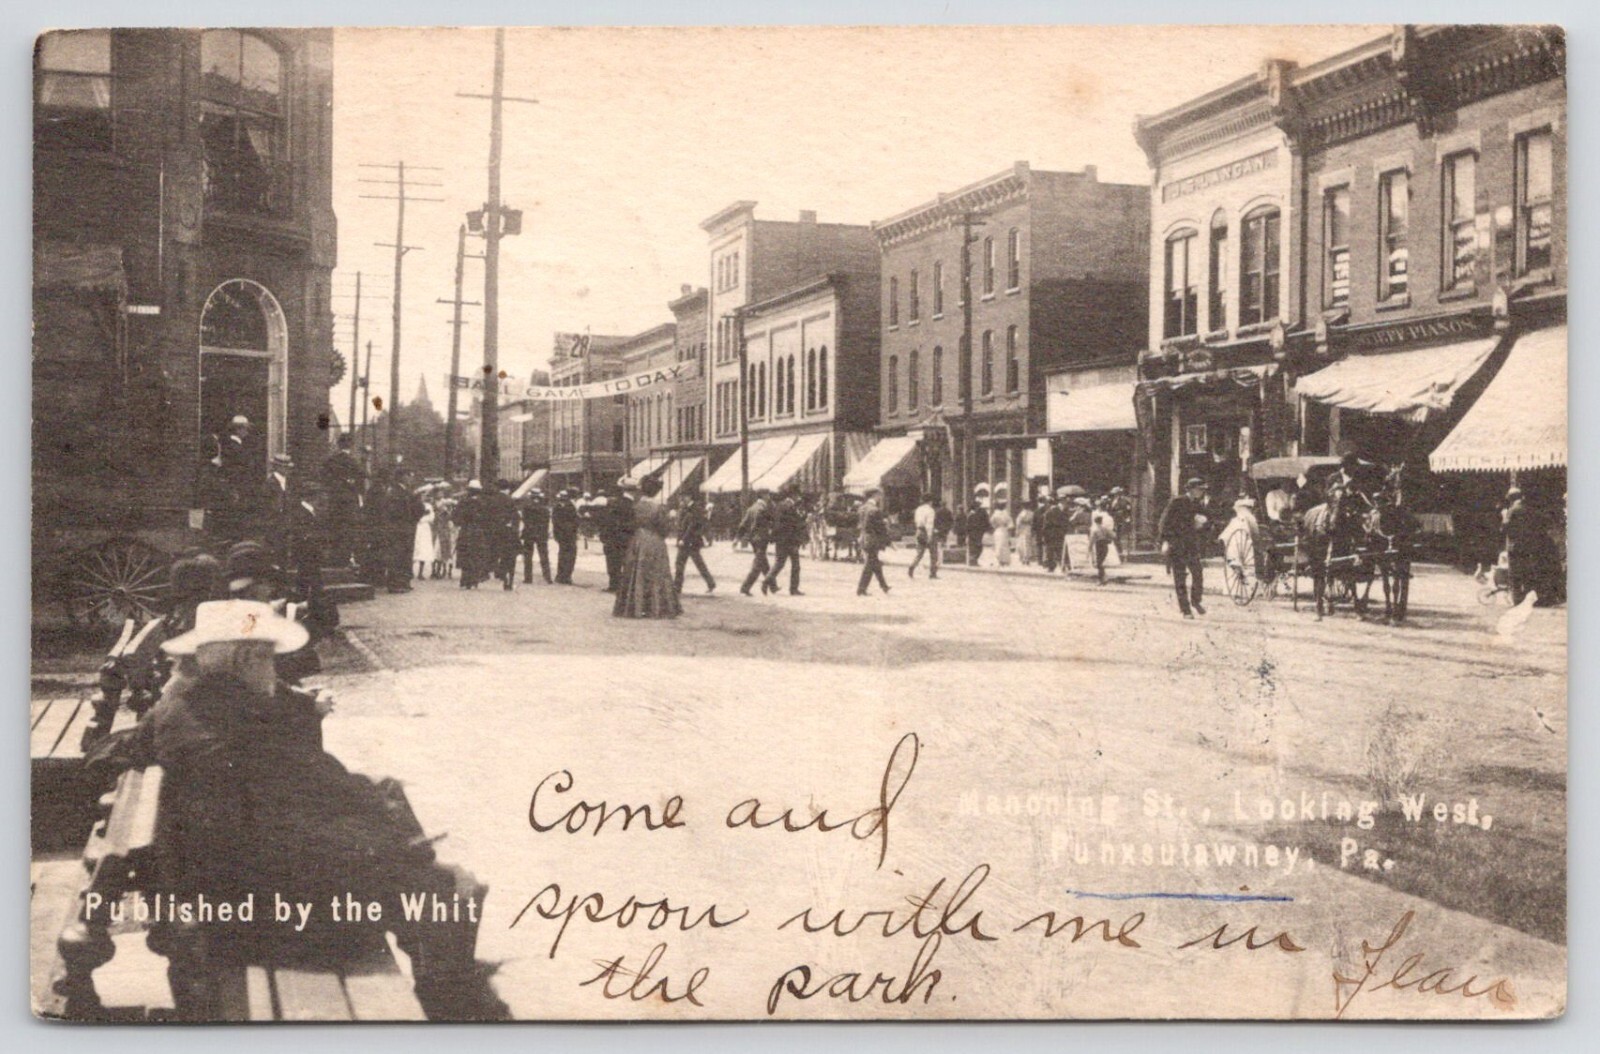 28
BALL GAME TODAY
PIANOS
Come and
spoon with me in
the park.
Jean
Mahoning St., Looking West,
Punxsutawney, Pa.
Published by the Whit